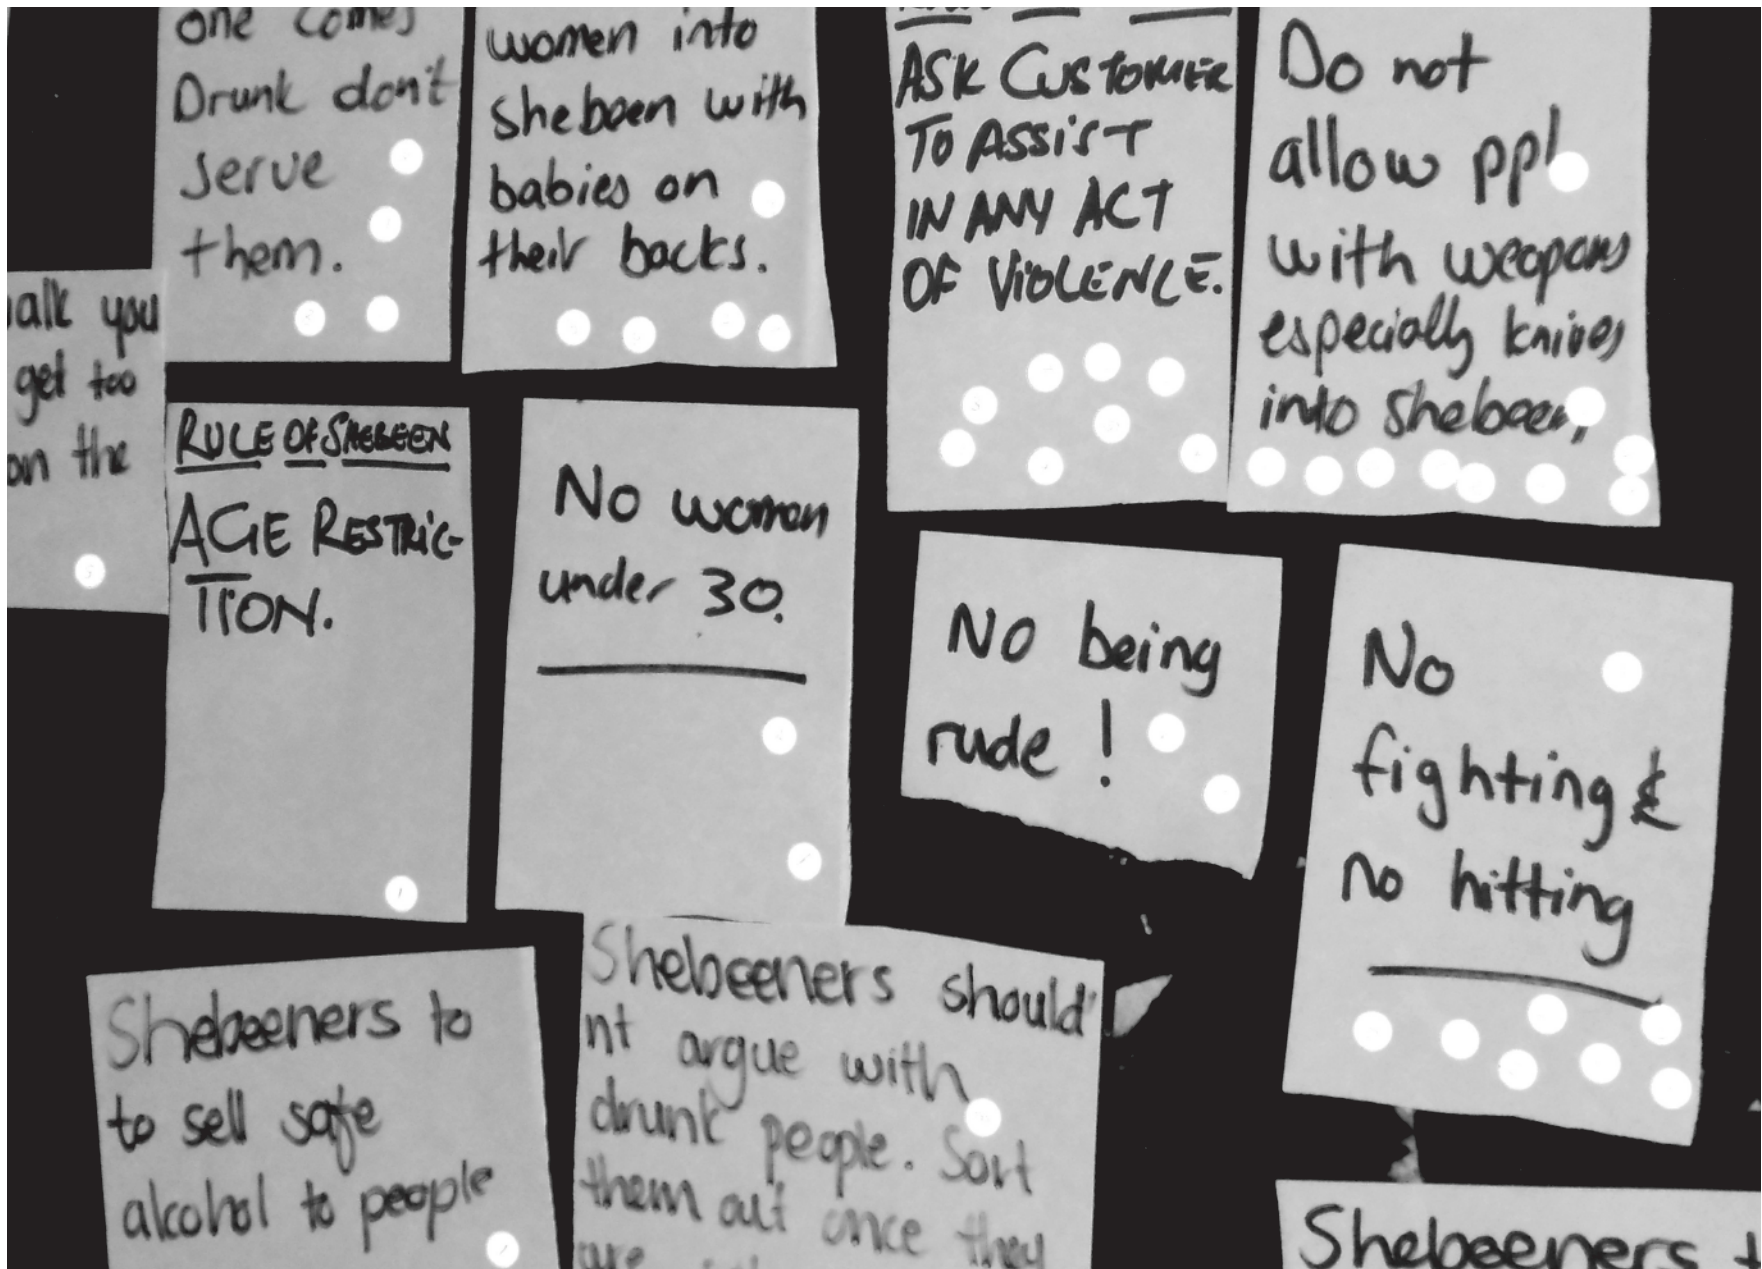 one comes
Drunk don't
serve
them.
women into
shebeen with
babies on
their backs.
ASK CUSTOMER
TO ASSIST
IN ANY ACT
OF VIOLENCE.
Do not
allow ppl
with weapons
especially knives
into shebeen,
you
get too
on the
RULE OF SHEBEEN
AGE RESTRIC-
TION.
No women
under 30.
No being
rude !
No
fighting &
no hitting
Shebeeners to
to sell safe
alcohol to people
Shebeeners should'
nt argue with
drunk people. Sort
them out once they
are
Shebeeners